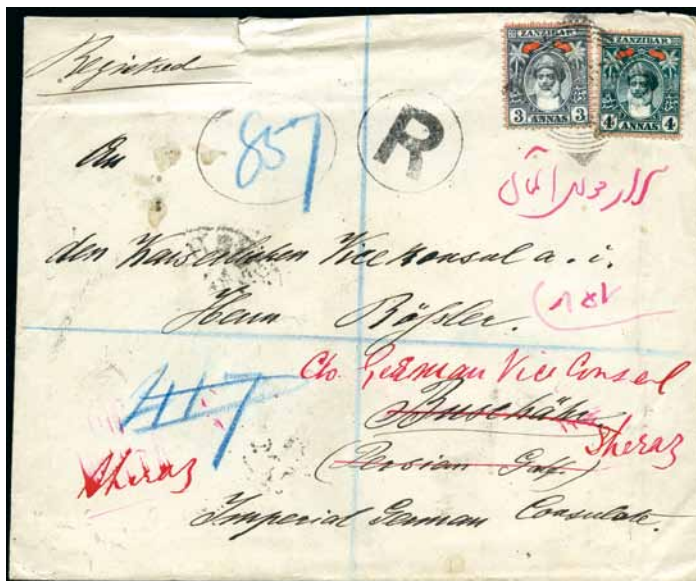 Registered
ZANZIBAR
3 ANNAS 3
ZANZIBAR
4 ANNAS 4
An
857
R
den Kaiserlichen Vice Konsul a. i.
Herrn Rößler.
٨٥٧
C/o. German Vice Consul
417
Buschähr
Sheraz
(Persian Golf)
Sheraz
Imperial German Consulate.